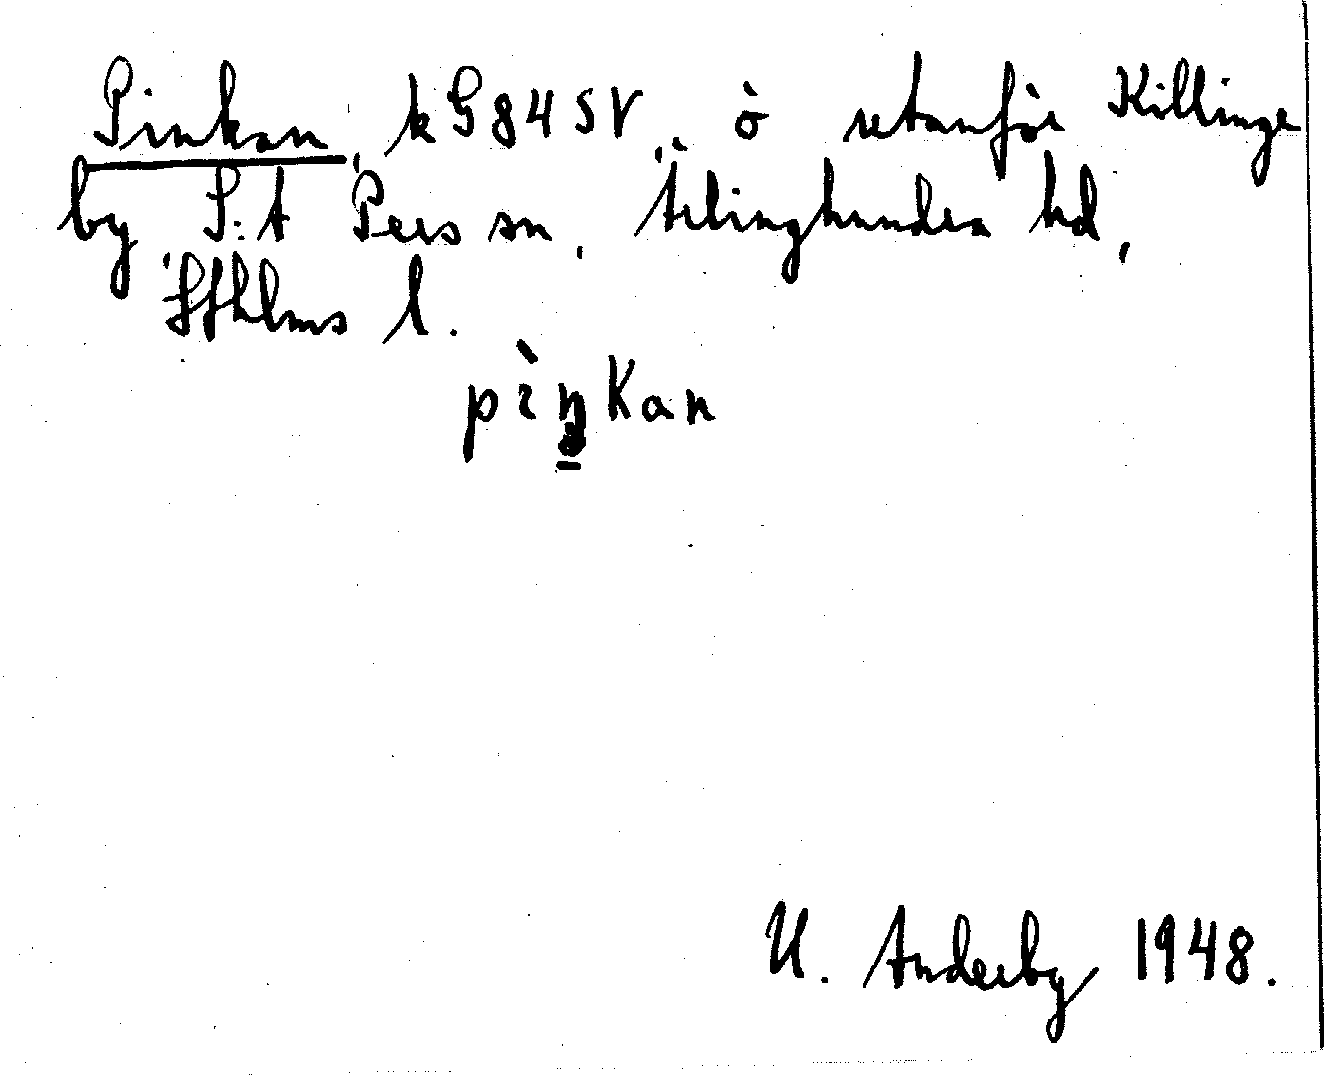 Pinkan, kG84SV, ö utanför Killinge
by S:t Pers sn, Ärlinghundra hd,
Sthlms l.
pìŋkan
U. Anderby 1948.